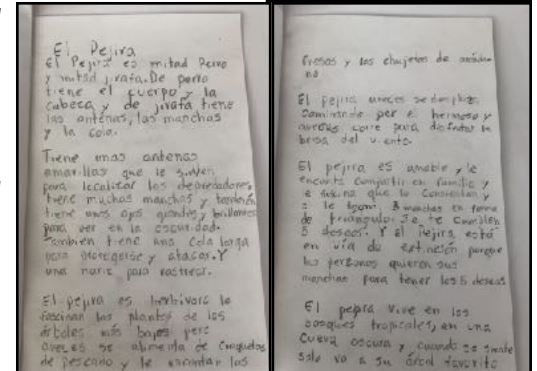 El Pejira
El Pejira es mitad Perro
y mitad jirafa. De perro
tiene el cuerpo y la
cabeza y de jirafa tiene
las antenas, las manchas
y la cola.
Tiene unas antenas
amarillas que le sirven
para localizar los depredadores,
tiene muchas manchas y también
tiene unos ojos grandes y brillantes
para ver en la oscuridad.
También tiene una cola larga
para protegerse y atacar. Y
una nariz para rastrear.
El pejira es herbívoro le
fascinan las plantas de los
árboles más bajos pero
aveces se alimenta de croquetas
de pescado y le encantan las
fresas y los chupetes de
no
El pejira aveces se desplaza
caminando por el hermoso y
aveces corre para disfrutar la
brisa del viento.
El pejira es amable y le
encanta compartir en familia y
le fascina que la consientan y
si le 3 manchas en forma
de triángulo. Se te cumplen
5 deseos. Y el Pejira está
en vía de extinción porque
las personas quieren sus
manchas para tener los 5 deseos
El pejira vive en los
bosques tropicales, en una
cueva oscura y cuando se siente
solo va a su árbol favorito